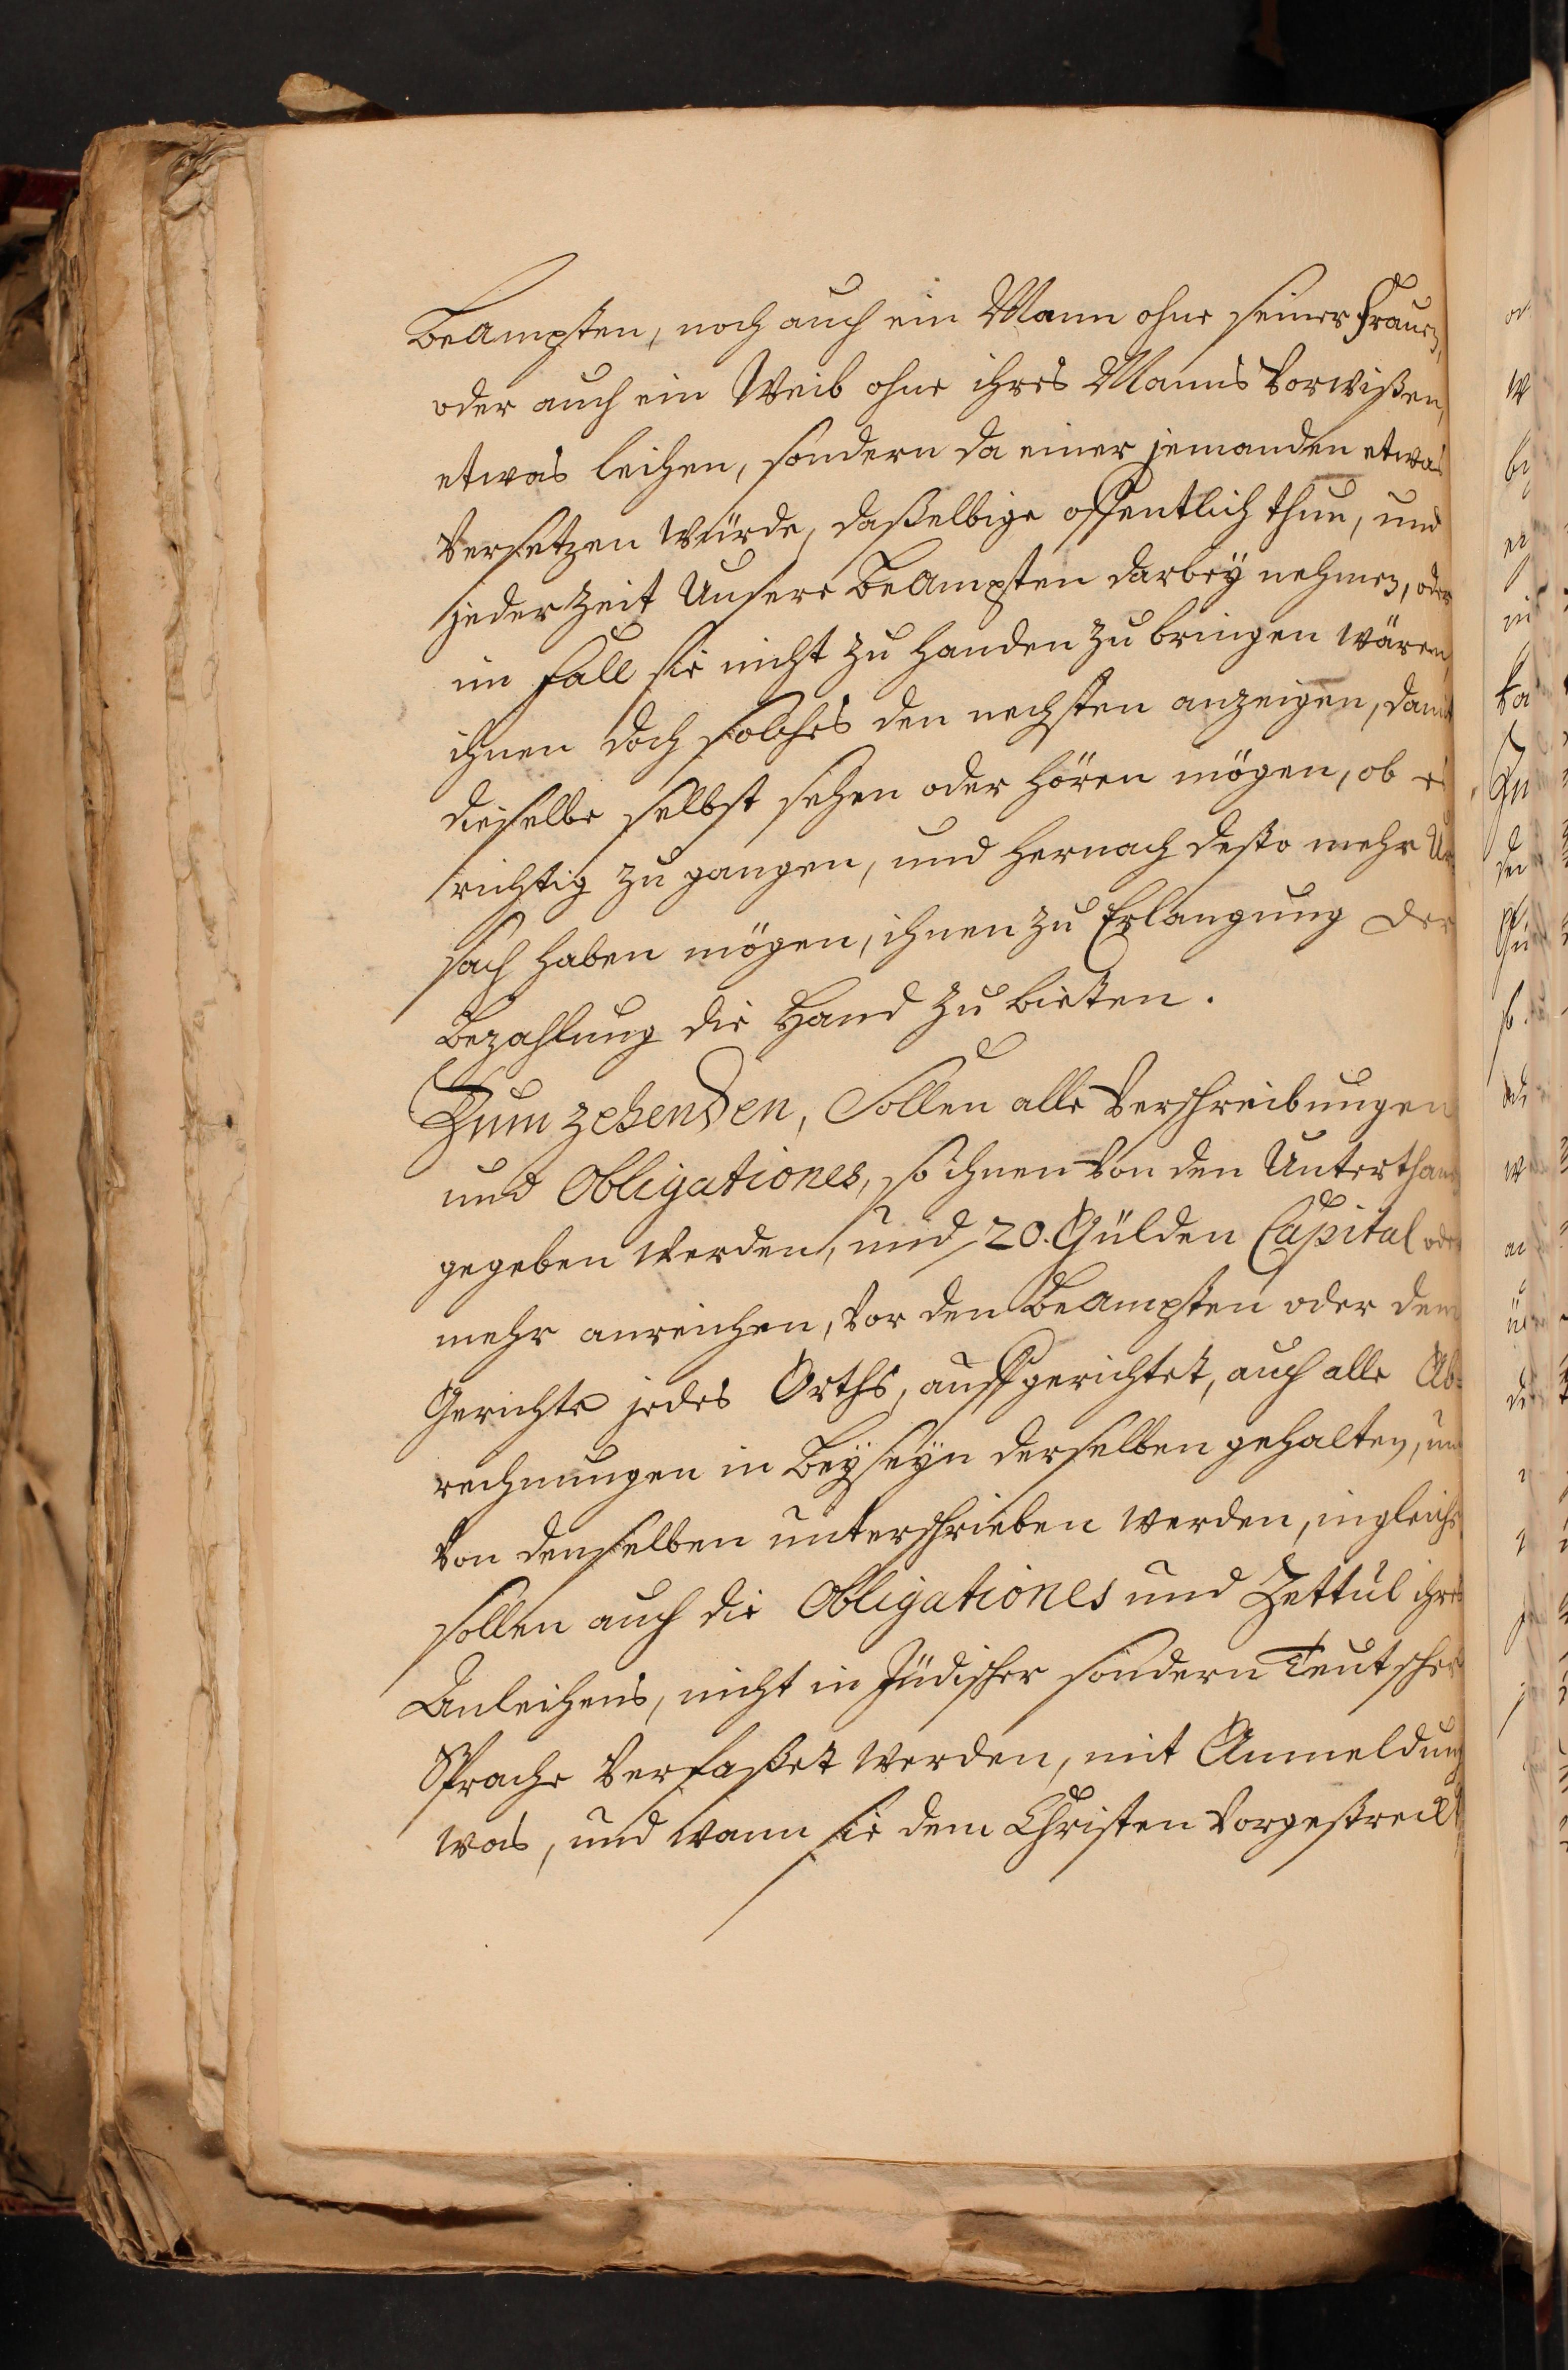 Beampsten, noch auch ein Mann ohne seiner Frauen,
oder auch ein Weib ohne ihres Manns Vorwißen,
etwas leihen, sondern da einer jemanden etwas
versetzen würde, daßelbige offentlich thun, und
jederzeit Unsere Beampsten darbeÿ nehmen, oder
im fall sie nicht zu handen zu bringen wären,
ihnen doch solches den nechsten anzeigen, damit
dieselbe selbst sehen oder hören mögen, ob es
richtig zu gangen, und hernach desto mehr Ur-
sach haben mögen, ihnen zu Erlangung der
Bezahlung die Hand zu bieten.
Zum zehenden, Sollen alle Verschreibungen
und Obligationes, so ihnen von den Unterthanen
gegeben werden, und 20. Gülden Capital oder
mehr anreichen, vor den Beampsten oder dem
Gerichte jedes Orths, auffgerichtet, auch alle Ab-
rechnungen in Beÿseÿn derselben gehalten, und
von denselben unterschrieben werden, ingleichen
sollen auch die Obligationes und Zettul ihres
Anleihens, nicht in Jüdischer sondern Teutscher
Sprache verfaßet werden, mit Anmeldung
was, und wann sie dem Christen vorgestreckt